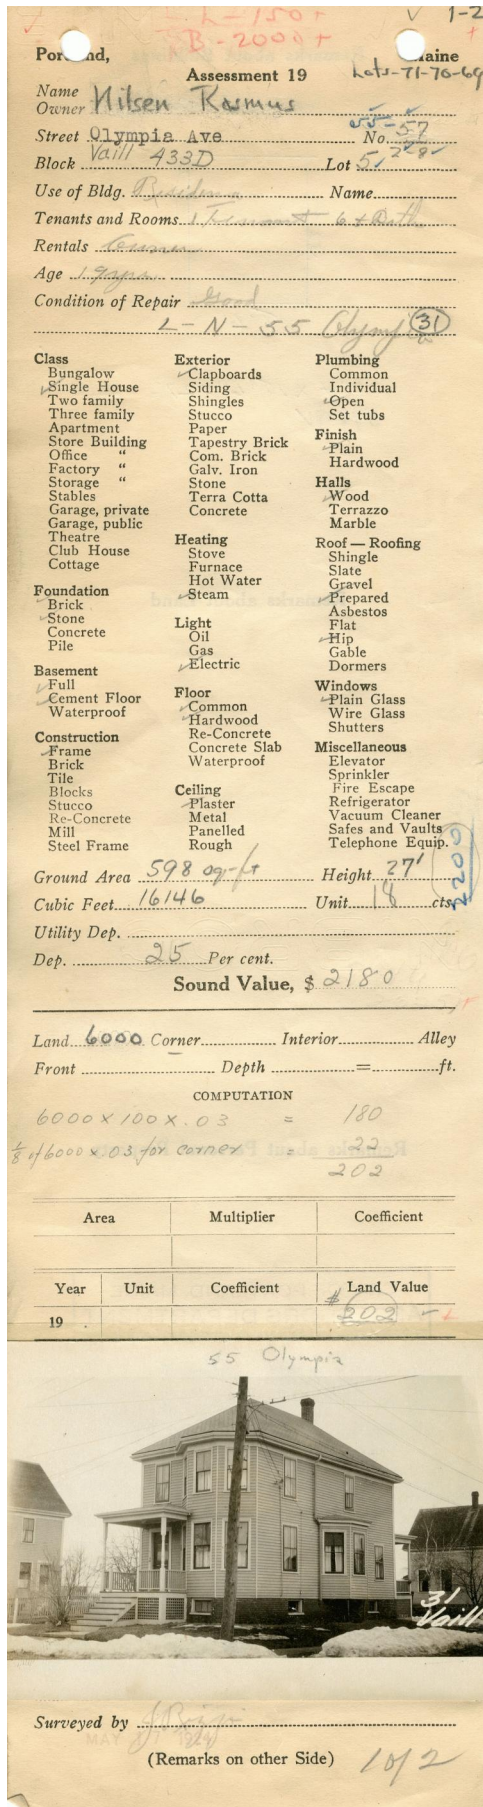 L-150+
B-2000+
1-2
Portland, Maine
Assessment 19
Lots-71-70-69
Name
Owner Nilsen Rasmus
Street Olympia Ave No. 55-57
Vaill
Block 433D Lot 5, 7-8
Use of Bldg. Residence Name
Tenants and Rooms 1 Tenement 6 + Bath
Rentals Owner
Age 19 yrs.
Condition of Repair Good
L-N-55 Olympia 31
Class
Bungalow
Single House
Two family
Three family
Apartment
Store Building
Office "
Factory "
Storage "
Stables
Garage, private
Garage, public
Theatre
Club House
Cottage
Foundation
Brick
Stone
Concrete
Pile
Basement
Full
Cement Floor
Waterproof
Construction
Frame
Brick
Tile
Blocks
Stucco
Re-Concrete
Mill
Steel Frame
Exterior
Clapboards
Siding
Shingles
Stucco
Paper
Tapestry Brick
Com. Brick
Galv. Iron
Stone
Terra Cotta
Concrete
Heating
Stove
Furnace
Hot Water
Steam
Light
Oil
Gas
Electric
Floor
Common
Hardwood
Re-Concrete
Concrete Slab
Waterproof
Ceiling
Plaster
Metal
Panelled
Rough
Plumbing
Common
Individual
Open
Set tubs
Finish
Plain
Hardwood
Halls
Wood
Terrazzo
Marble
Roof — Roofing
Shingle
Slate
Gravel
Prepared
Asbestos
Flat
Hip
Gable
Dormers
Windows
Plain Glass
Wire Glass
Shutters
Miscellaneous
Elevator
Sprinkler
Fire Escape
Refrigerator
Vacuum Cleaner
Safes and Vaults
Telephone Equip.
2200
Ground Area 598 sq-ft Height 27'
Cubic Feet 16146 Unit 18 cts.
Utility Dep.
Dep. 25 Per cent.
Sound Value, $ 2180
Land 6000 Corner Interior Alley
Front Depth = ft.
COMPUTATION
6000 x 100 x .03 = 180
1/8 of 6000 x .03 for corner = 22
202
Area Multiplier Coefficient
Year Unit Coefficient Land Value
19 $ 202
55 Olympia
31
Vaill
Surveyed by
MAY
(Remarks on other Side)
1 of 2